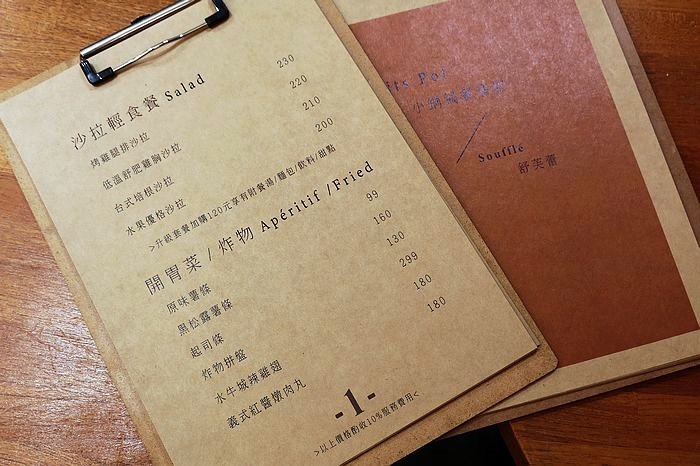 沙拉輕食餐 Salad
烤雞腿排沙拉 230
低溫舒肥雞胸沙拉 220
台式培根沙拉 210
水果優格沙拉 200
>升級套餐加購120元享有附餐湯/麵包/飲料/甜點
開胃菜 / 炸物 Apéritif /Fried
原味薯條 99
黑松露薯條 160
起司條 130
炸物拼盤 299
水牛城辣雞翅 180
義式紅醬燉肉丸 180
-1-
>以上價格酌收10%服務費用<
its Pot
小鍋
Soufflé
舒芙蕾